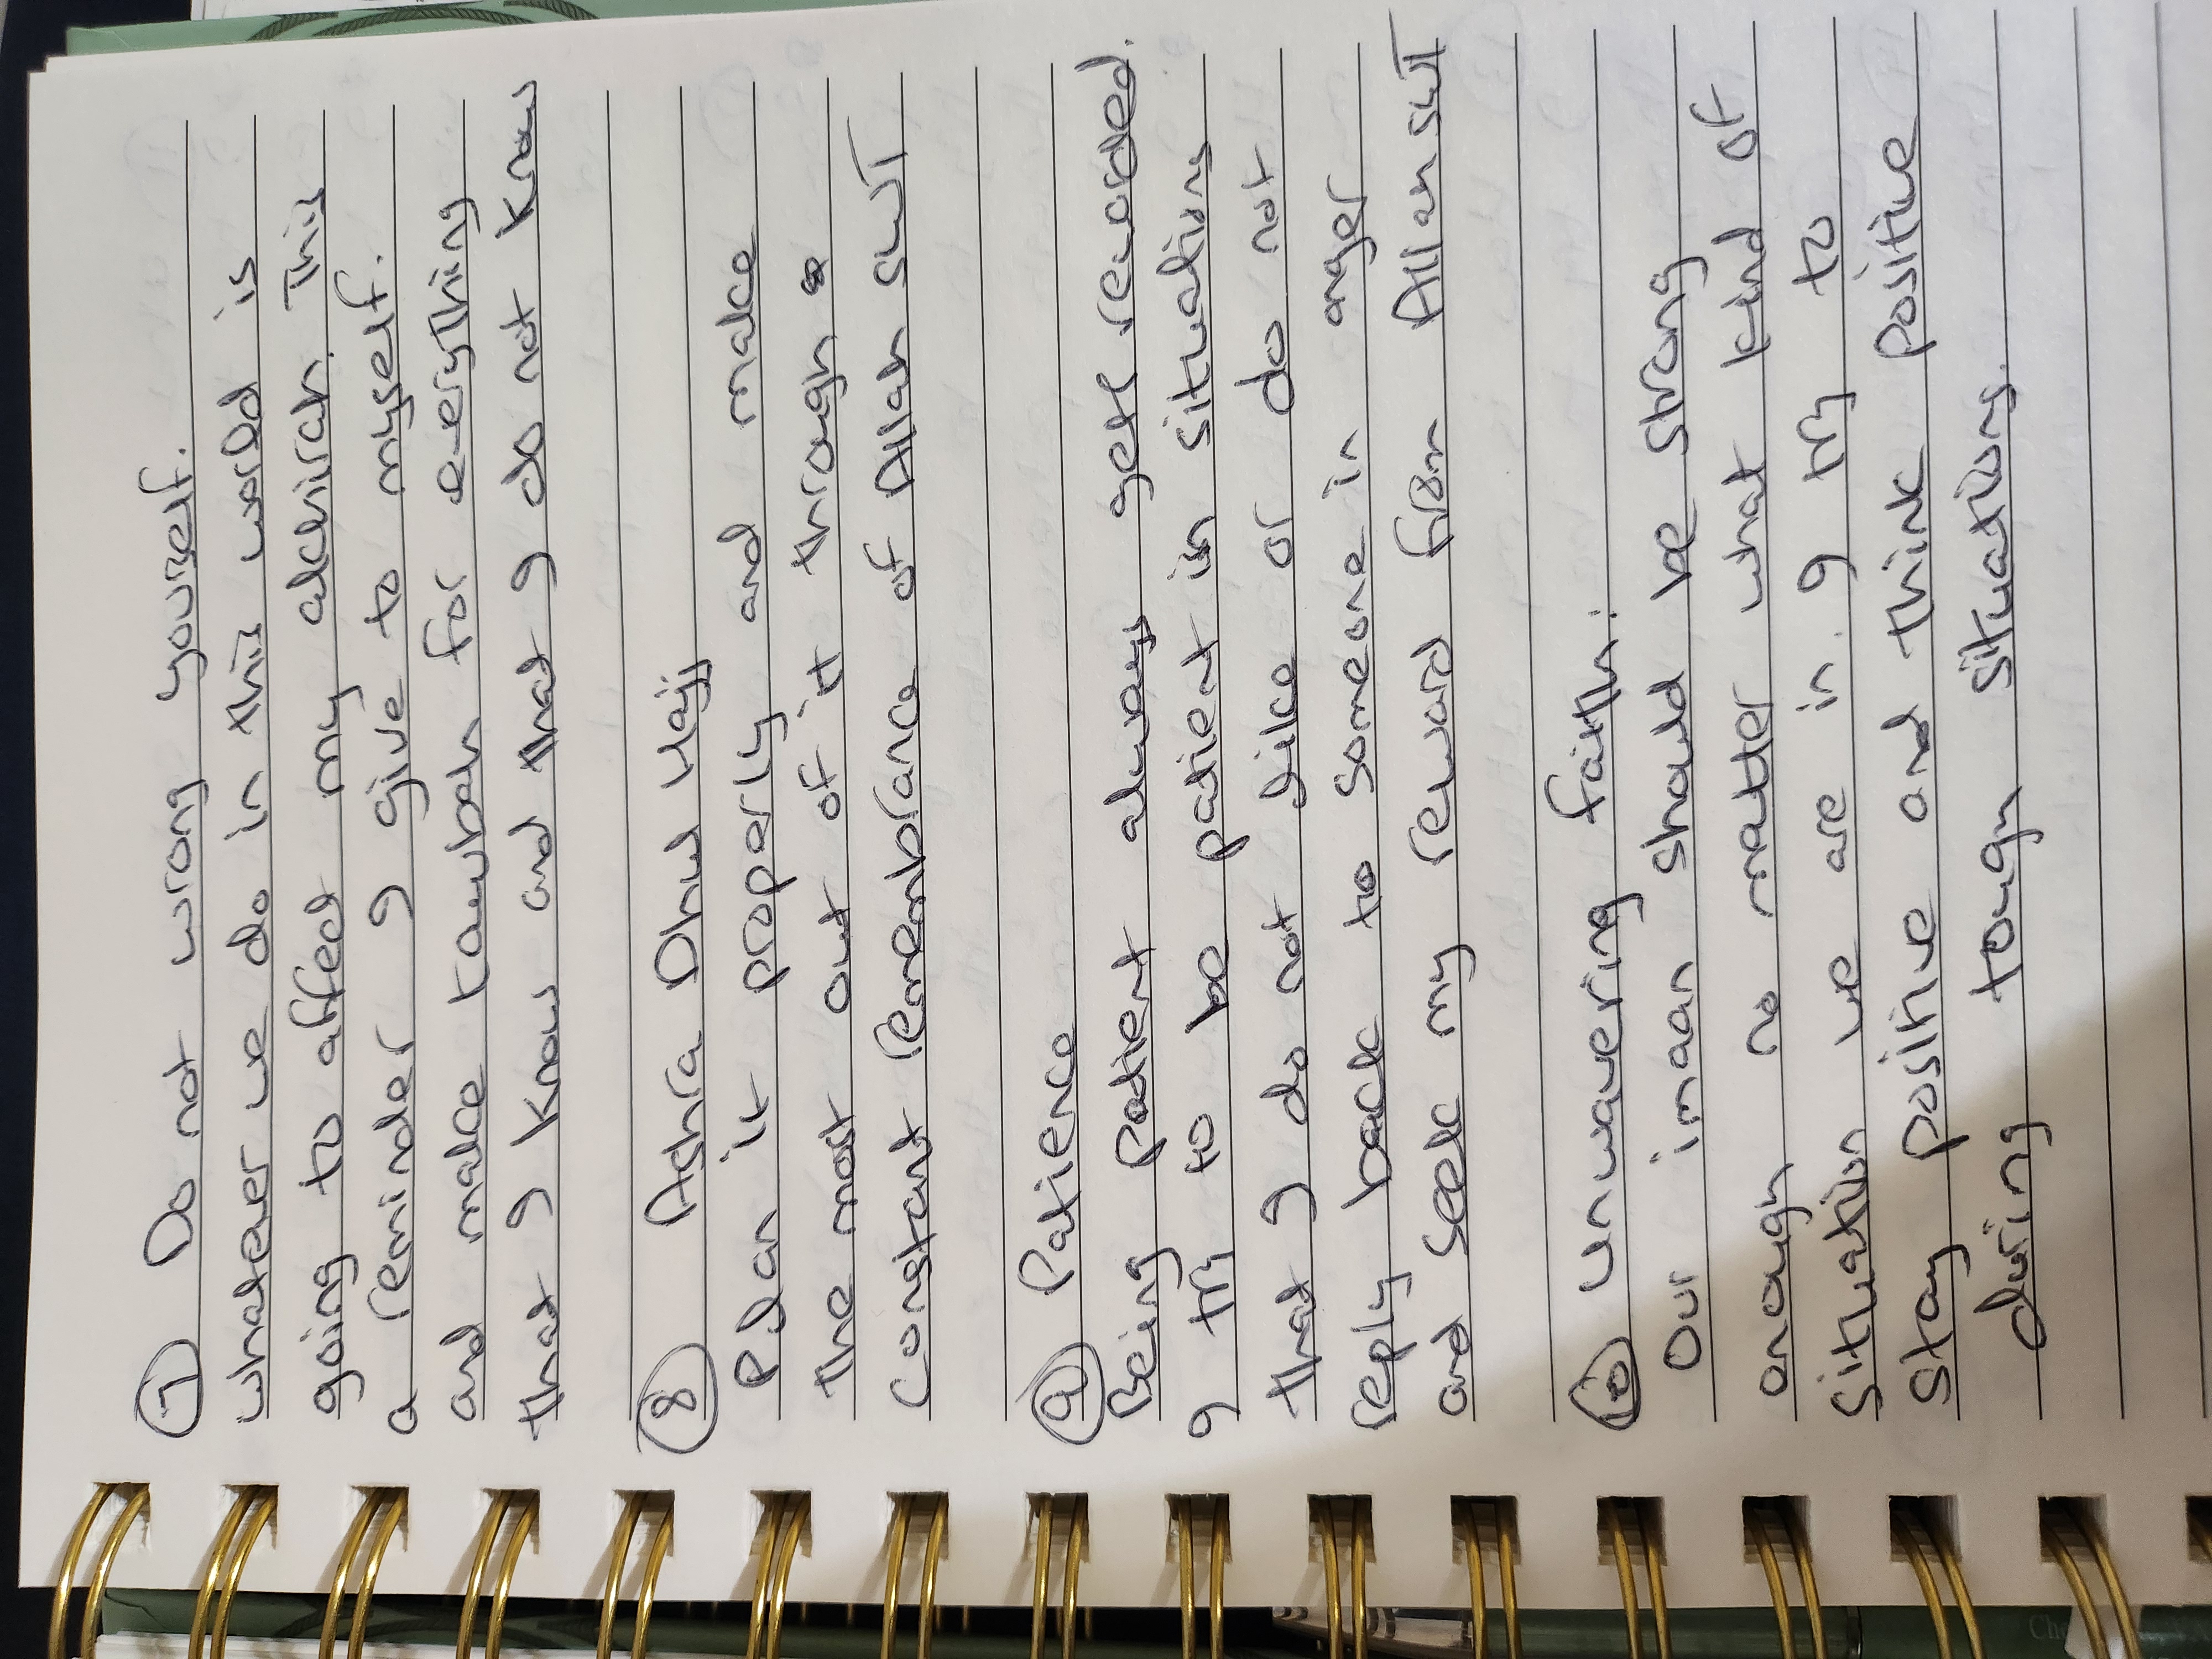 7 Do not wrong yourself.
whatever we do in this world is
going to affect my akhirah. This
a reminder I give to myself.
and make tawbah for everything
that I know and that I do not know
8 Ashra Dhul Hajj
Plan it properly and make
the most out of it through
constant remembrance of Allah SWT
9 Patience
Being patient always gets rewarded.
I try to be patient in situations
that I do not like or do not
reply back to someone in anger
and seek my reward from Allah SWT
10 Unwavering faith:
Our imaan should be strong
enough no matter what kind of
situation we are in. I try to
stay positive and think positive
during tough situations.